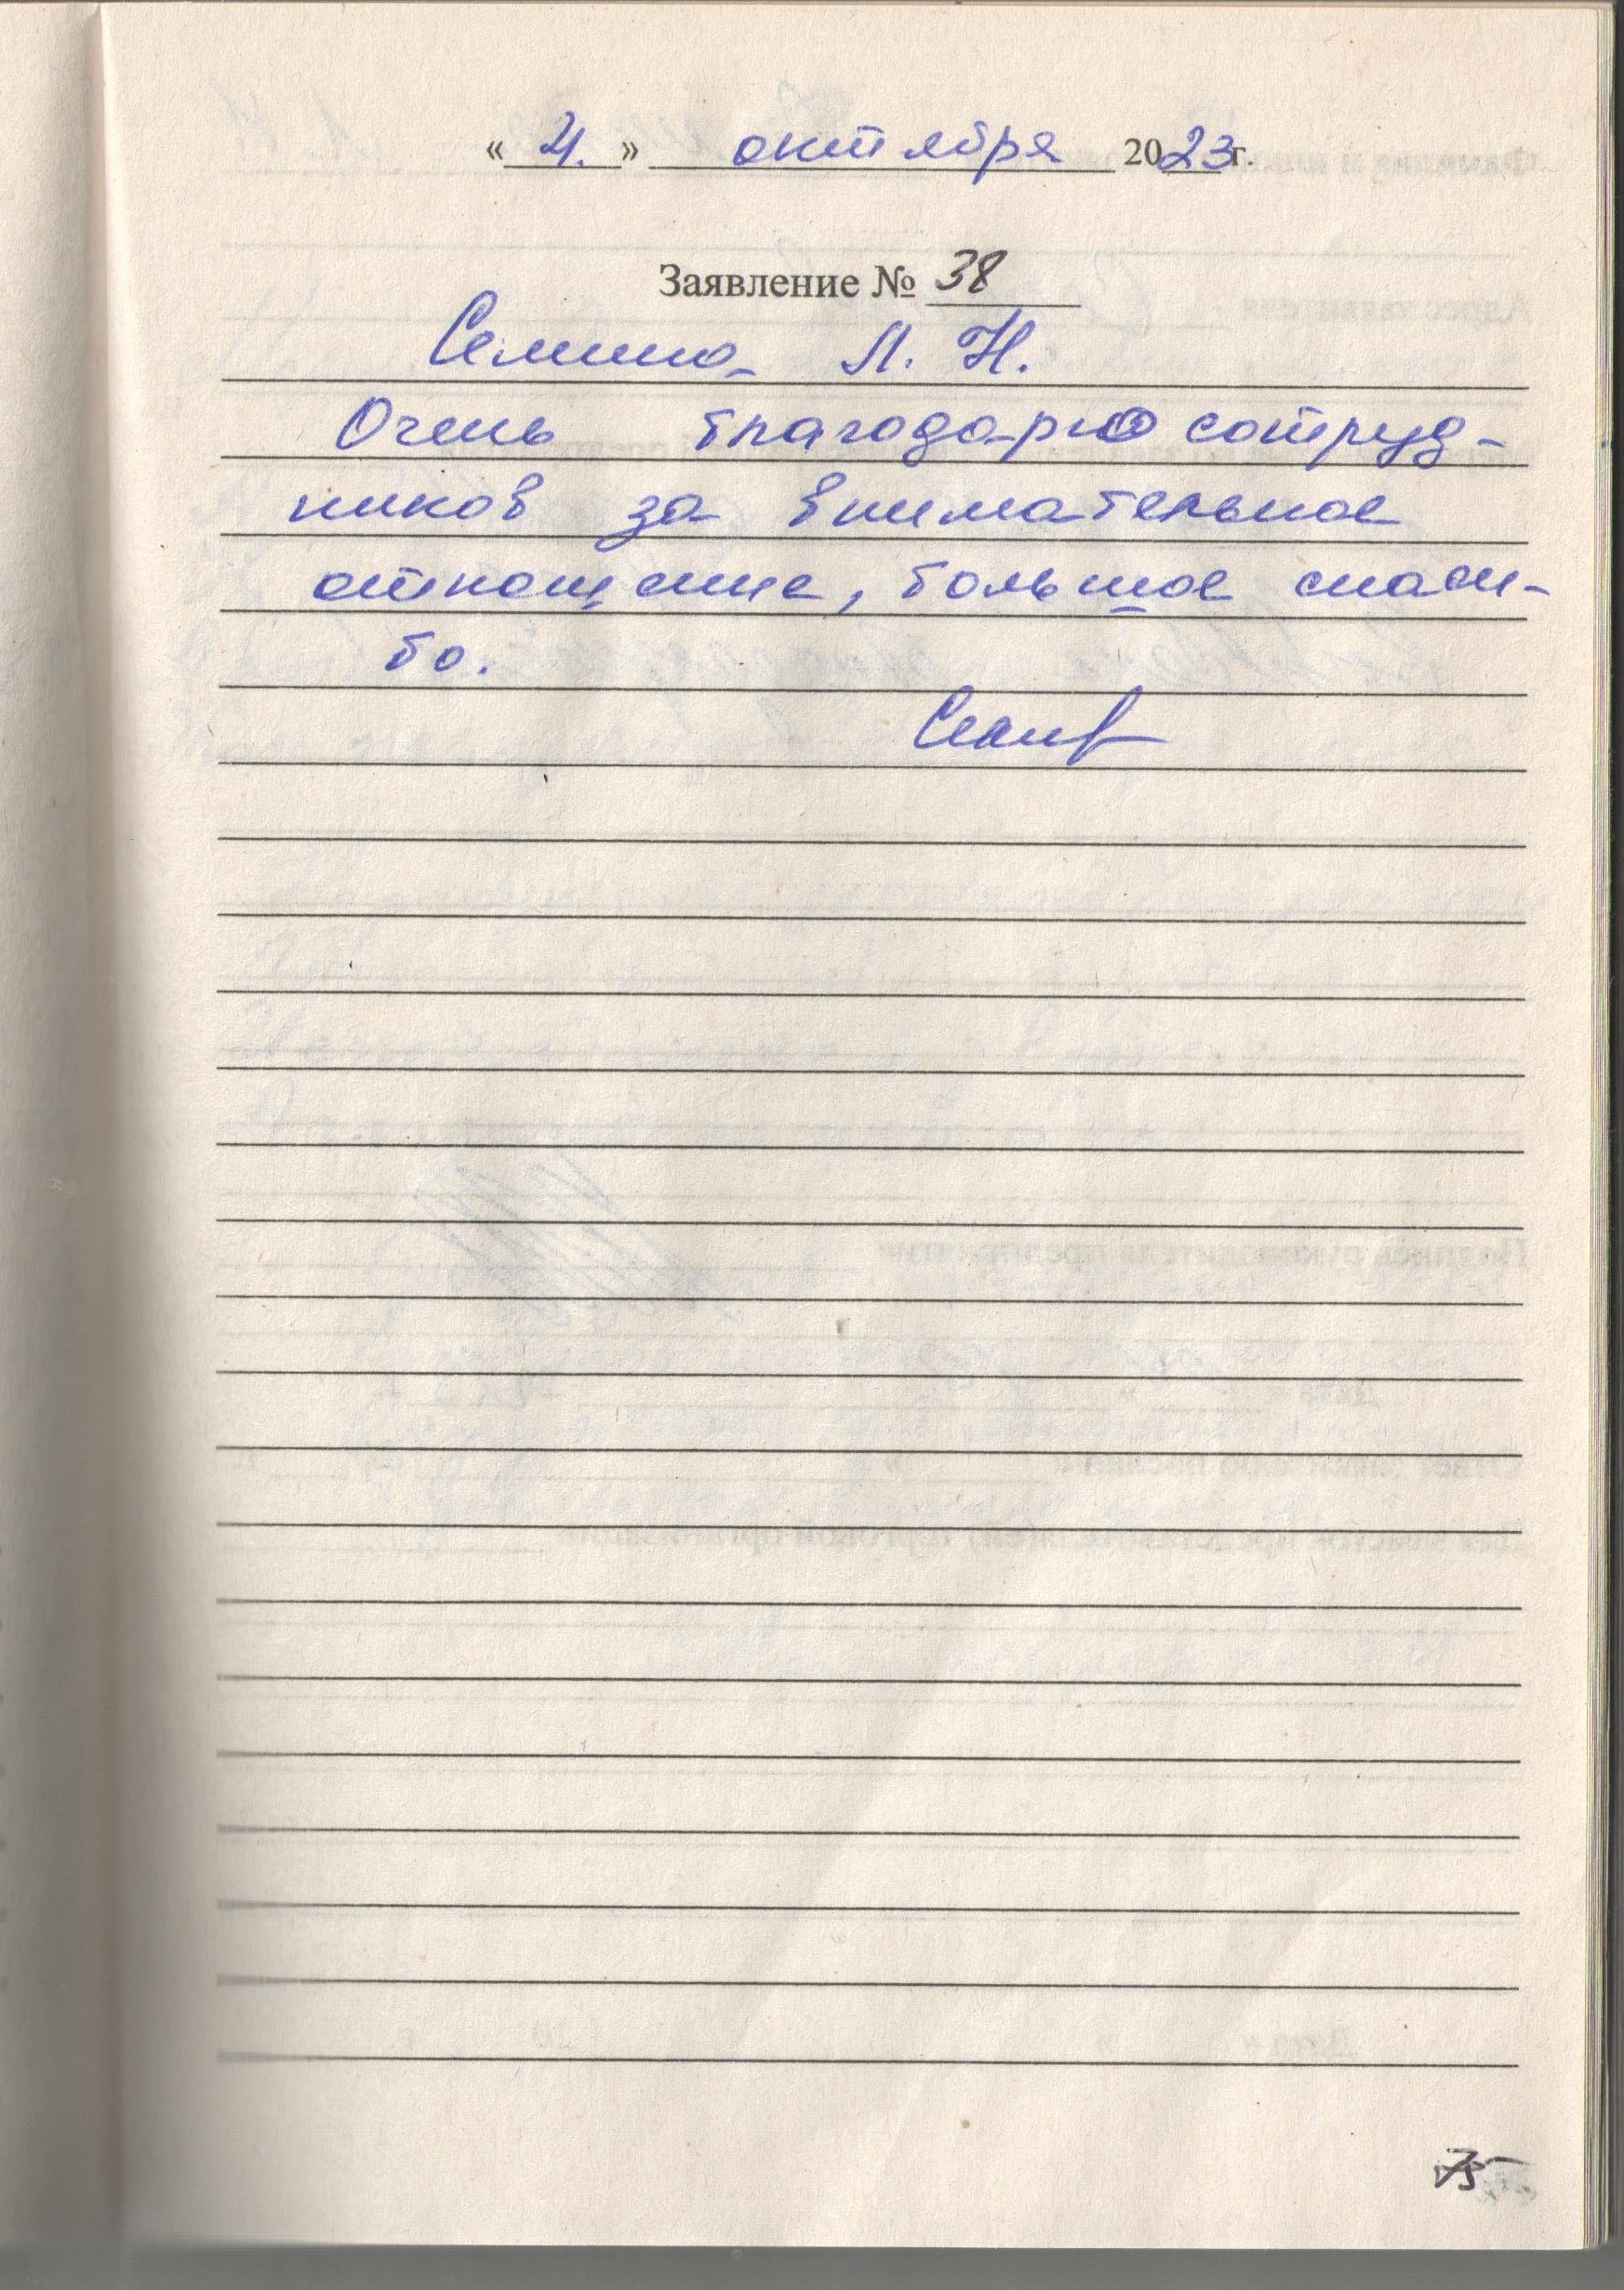 « 4. » октября 2023 г.
Заявление № 38
Семина Л. Н.
Очень благодарю сотруд-
ников за внимательное
отношение, большое спаси-
бо.
75